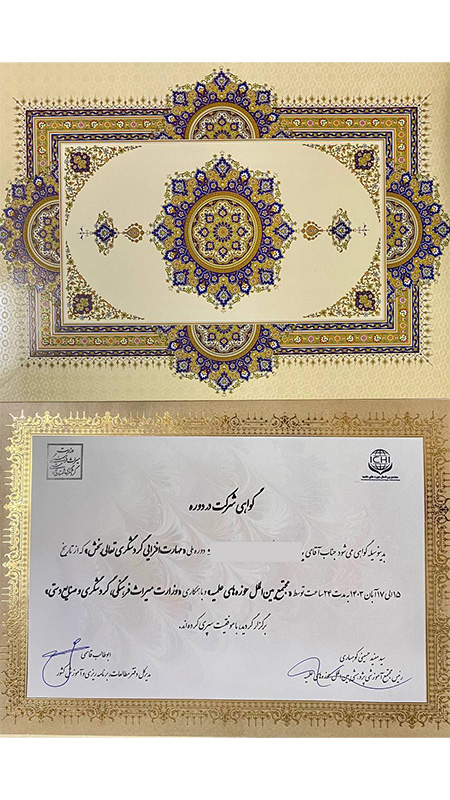 ICHI
گواهی شرکت در دوره
بدینوسیله گواهی می شود جناب آقای به دوره ملی «مهارت افزایی گردشگری تعالی بخش» که از تاریخ
۱۵ الی ۱۷ آبان ۱۴۰۳ به مدت ۲۴ ساعت توسط «مجتمع بین الملل حوزه های علمیه» و با همکاری «وزارت میراث فرهنگی، گردشگری و صنایع دستی»
برگزار گردید، با موفقیت سپری کرده اند.
سید مفید حسینی کوهساری
رئیس مجتمع آموزشی پژوهشی بین الملل حوزه های علمیه
ابوطالب قاسمی
مدیرکل دفتر مطالعات، برنامه ریزی و آموزش ملی کشور